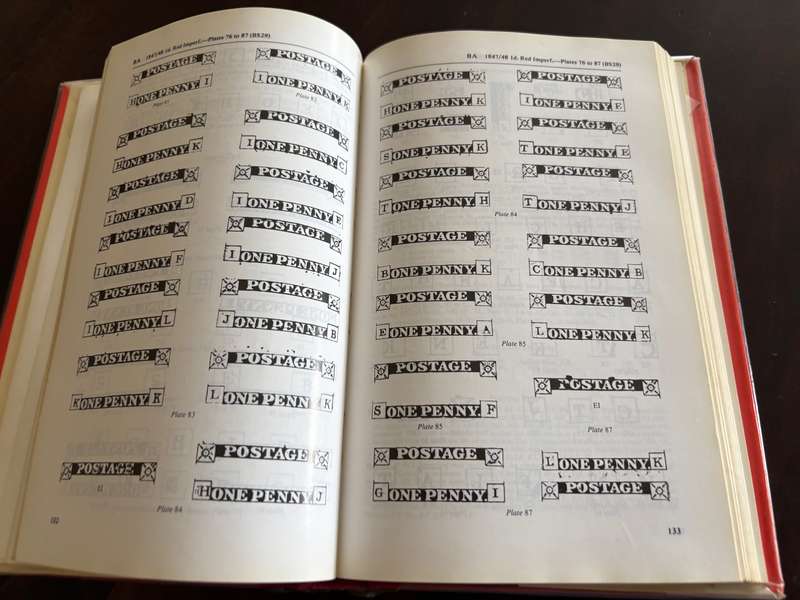 BA 1847/48 1d. Red Imperf.—Plates 76 to 87 (BS28)
POSTAGE
HONE PENNY I
Plate 81
POSTAGE
I ONE PENNY K
Plate 83
POSTAGE
HONE PENNY K
POSTAGE
I ONE PENNY C
POSTAGE
I ONE PENNY D
POSTAGE
I ONE PENNY E
POSTAGE
I ONE PENNY F
POSTAGE
I ONE PENNY J
POSTAGE
I ONE PENNY L
POSTAGE
J ONE PENNY B
POSTAGE
K ONE PENNY K
POSTAGE
L ONE PENNY K
Plate 83
POSTAGE
POSTAGE
H ONE PENNY J
Plate 84
132
BA 1847/48 1d. Red Imperf.—Plates 76 to 87 (BS28)
POSTAGE
H ONE PENNY K
POSTAGE
I ONE PENNY E
POSTAGE
S ONE PENNY K
POSTAGE
T ONE PENNY E
POSTAGE
T ONE PENNY H
POSTAGE
T ONE PENNY J
Plate 84
POSTAGE
B ONE PENNY K
POSTAGE
C ONE PENNY B
POSTAGE
E ONE PENNY A
POSTAGE
L ONE PENNY K
Plate 85
POSTAGE
S ONE PENNY F
Plate 85
POSTAGE
EI
Plate 87
POSTAGE
G ONE PENNY I
L ONE PENNY K
POSTAGE
Plate 87
133